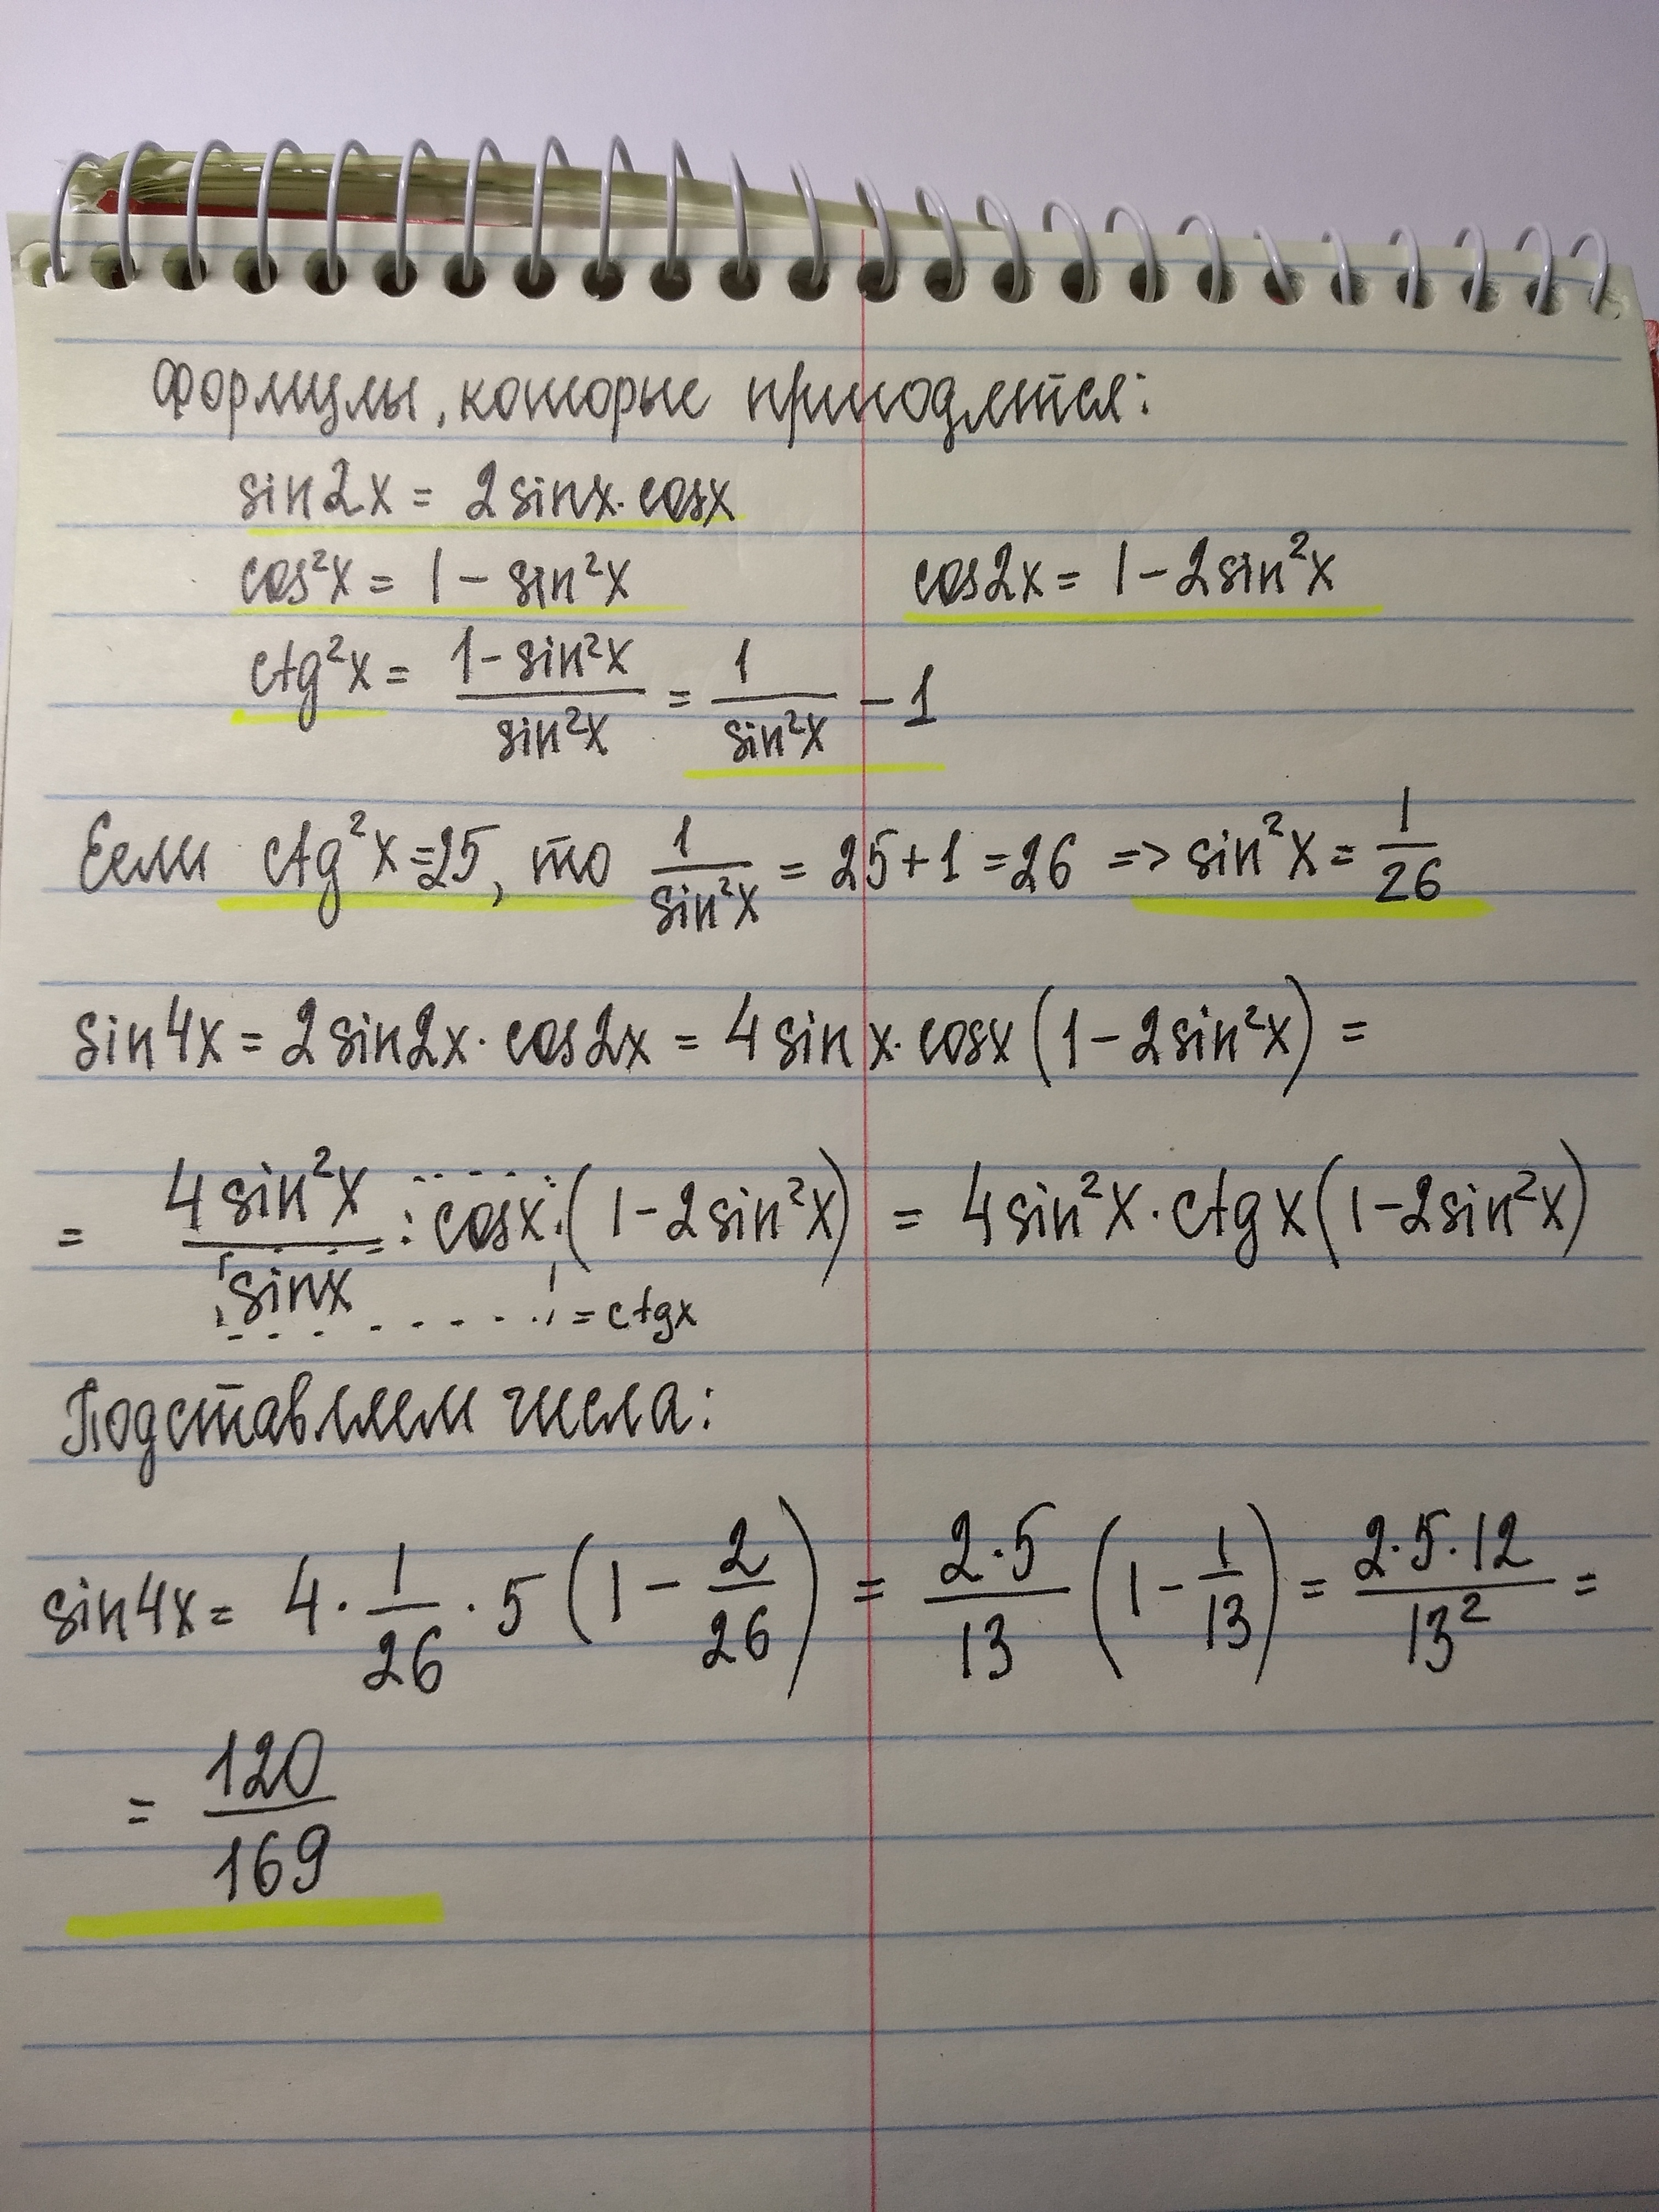 Формулы, которые пригодятся:
sin2x = 2sinx·cosx
cos²x = 1 - sin²x cos2x = 1 - 2sin²x
ctg²x = (1 - sin²x)/(sin²x) = 1/(sin²x) - 1
Если ctg²x = 25, то 1/(sin²x) = 25 + 1 = 26 => sin²x = 1/26
sin4x = 2sin2x·cos2x = 4sinx·cosx(1 - 2sin²x) =
= (4sin²x)/(sinx) · cosx·(1 - 2sin²x) = 4sin²x·ctgx(1 - 2sin²x)
= ctgx
Подставляем числа:
sin4x = 4·1/26·5(1 - 2/26) = (2·5)/13 (1 - 1/13) = (2·5·12)/13² =
= 120/169